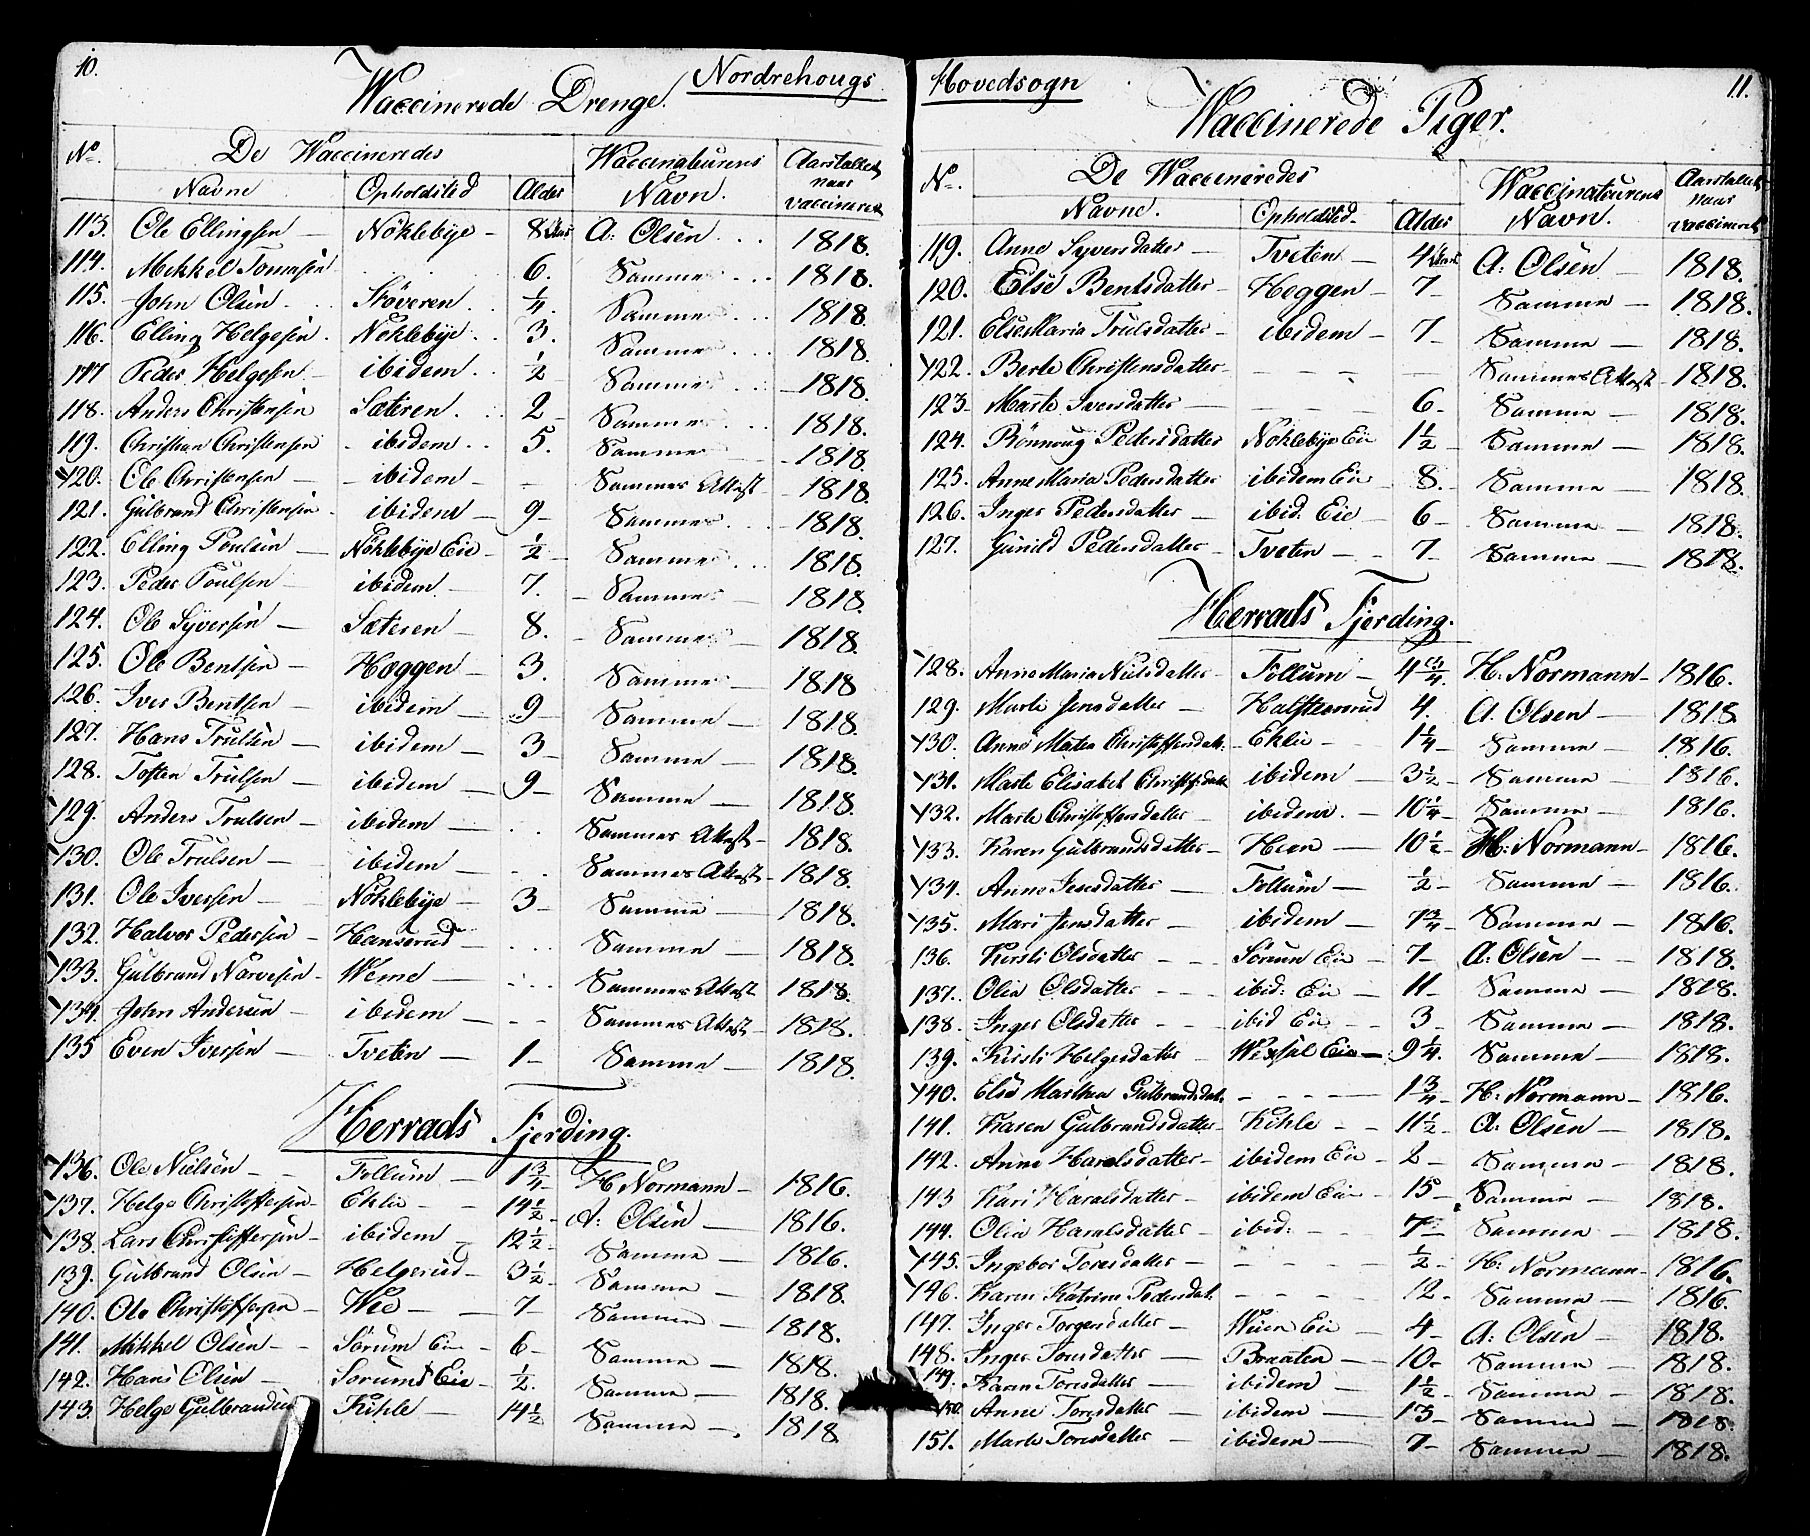 10.
Nordrehougs
Waccinerede Drenge.
No. De Waccineredes Waccinateurens Navn. Aarstallet naar vaccineret
Navne Opholdsted Alder
113. Ole Ellingsen — Nöklebye – 8 Aar A: Olsen . . . 1818.
114. Mikkel Tommsen 6. Samme . . . 1818.
115. John Olsen . . Stöveren . . 1/4. Samme . . . 1818.
116. Elling Helgesen . Nöklebye . . 3. Samme . . . 1818.
117 Peder Helgesen – ibidem . . 1/2 Samme . . . 1818.
118. Anders Christensen Sæteren . . 2 – Samme . . . 1818.
119. Christian Christensen – ibidem . . 5. Samme – 1818.
120. Ole Christensen – – ibidem – – Sammes Attest – 1818
121. Gulbrand Christensen – ibidem – 9 – Samme . . . 1818.
122. Elling Poulsen – Nöklebye Eie – 1/2 – Samme . . . 1818.
123. Peder Poulsen – ibidem – 7. – Samme — 1818.
124. Ole Syversen – Sæteren – 8. – Samme — 1818.
125. Ole Bentsen – Hæggen – 3. Samme — 1818
126. Iver Bentsen – ibidem – 9 – Samme — 1818.
127. Hans Trulsen – ibidem – 3 – Samme — 1818.
128. Tosten Trulsen – ibidem – 9 – Samme — 1818.
129. Anders Trulsen – ibidem – . . Sammes Attest – 1818.
130. Ole Trulsen – ibidem – . . Sammes Attest – 1818.
131. Ole Iversen – Nöklebye – 3 – Samme — 1818.
132. Halvor Pedersen – Hanserud – . . . Samme — 1818.
133. Gulbrand Narvesen – Weme — . . . Sammes Attest 1818.
134. John Andersen – ibidem — – – Sammes Attest – 1818.
135 Even Iversen – Tveten — 1 – Samme — 1818.
Herrads Fjerding.
136. Ole Nielsen – – Follum – 1 3/4 H Normann – 1816.
137. Helge Christoffersen – Eklie – – 14 1/2 – A: Olsen — 1816.
138. Lars Christoffersen – ibidem – 12 1/2 – Samme — 1816.
139. Gulbrand Olsen – Helgerud – 3 1/2 Samme — 1818.
140. Ole Christoffersen – Wee – – 7 – Samme — 1818.
141. Mikkel Olsen – – Sörum Eie – 6 – Samme — 1818.
142. Hans Olsen — Sorums Eie – 1/2. Samme — 1818.
143. Helge Gulbrandsen Kihle — 14 1/2 – Samme — 1818
Hovedsogn
11.
Waccinerede Piger.
No. De Waccineredes Waccinateurens Navn. Aarstallet naar vaccineret
Navne. Opholdsted. Alder
119. Anne Syversdatter – Tveten – 4 Aar A: Olsen — 1818.
120. Else Bentsdatter – Heggen – 7 – Samme — 1818.
121. Else Maria Trulsdatter – ibidem – 7 – Samme — 1818.
122. Berte Christensdatter – – – – – Sammes Attest – 1818.
123. Marte Iversdatter — – – – – 6 – Samme — 1818.
124. Rönnoug Pedersdatter Nöklebye Eie 1 1/2 – Samme — 1818.
125. Anne Maria Pedersdatter ibidem Eie – 8. – Samme — 1818.
126. Inger Pedersdatter – ibid. Eie – 6 – Samme — 1818.
127. Gunild Pedersdatter – Tveten – – 7 – Samme — 1818.
Herrads Fjerding.
128. Anne Maria Nielsdatter – Follum – 4 3/4. H: Normann – 1816.
129. Marte Jensdatter – Halfstensrud 4. A. Olsen — 1818.
130. Anne Matea Christoffersdatr. – Eklie – 1 1/4 – Samme — 1816.
131. Marte Elisabet Christoffersdatr. ibidem – 3 1/2 – Samme — 1816.
132. Marte Christoffersdatter – ibidem. – 10 1/4 – Samme — 1816.
133. Karen Gulbrandsdatter – Heen – 10 1/2 – H: Normann – 1816.
134. Anne Jensdatter — Follum – 1/2 – Samme — 1816.
135. Mari Jensdatter — ibidem – 7 3/4 – Samme — 1816.
136. Kirsti Olsdatter – – Sörum Eie – 7 – A: Olsen – – 1818.
137. Olia Olsdatter – – – ibid: Eie – 11 – Samme — 1818.
138. Inger Olsdatter – – ibid Eie – – 3 – Samme — 1818.
139. Kristi Helgesdatter – Wexsal Eie – 9 1/4. Samme — 1818.
140. Else Marthea Gulbrandsdatr. – – – – 1 3/4 – H: Normann – 1816.
141. Karen Gulbrandsdatter – Kihle – – 11 1/2 – A: Olsen — 1818.
142. Anne Haralsdatter – ibidem Eie – 2 – Samme — 1818.
143 Kari Haralsdatter – ibidem Eie – 15 – Samme — 1818.
144. Olia Haralsdatter – ibid: – – – 7 – Samme — 1818.
145. Ingebor Toresdatter – – – – – 1/2 – H: Normann – 1816.
146. Karen Katrine Pedersdatr. – – – – 12 – Samme — 1816.
147. Inger Torgersdatter – Wiien Eie – 4 – A: Olsen — 1818.
148. Inger Toresdatter — Braaten – 10 – Samme — 1818.
149. Karen Toresdatter – ibidem – 1 1/2 – Samme — 1818.
150. Anne Toresdatter – ibidem – 13 – Samme — 1818.
151. Marte Toresdatter – ibidem – 7 – Samme — 1818.